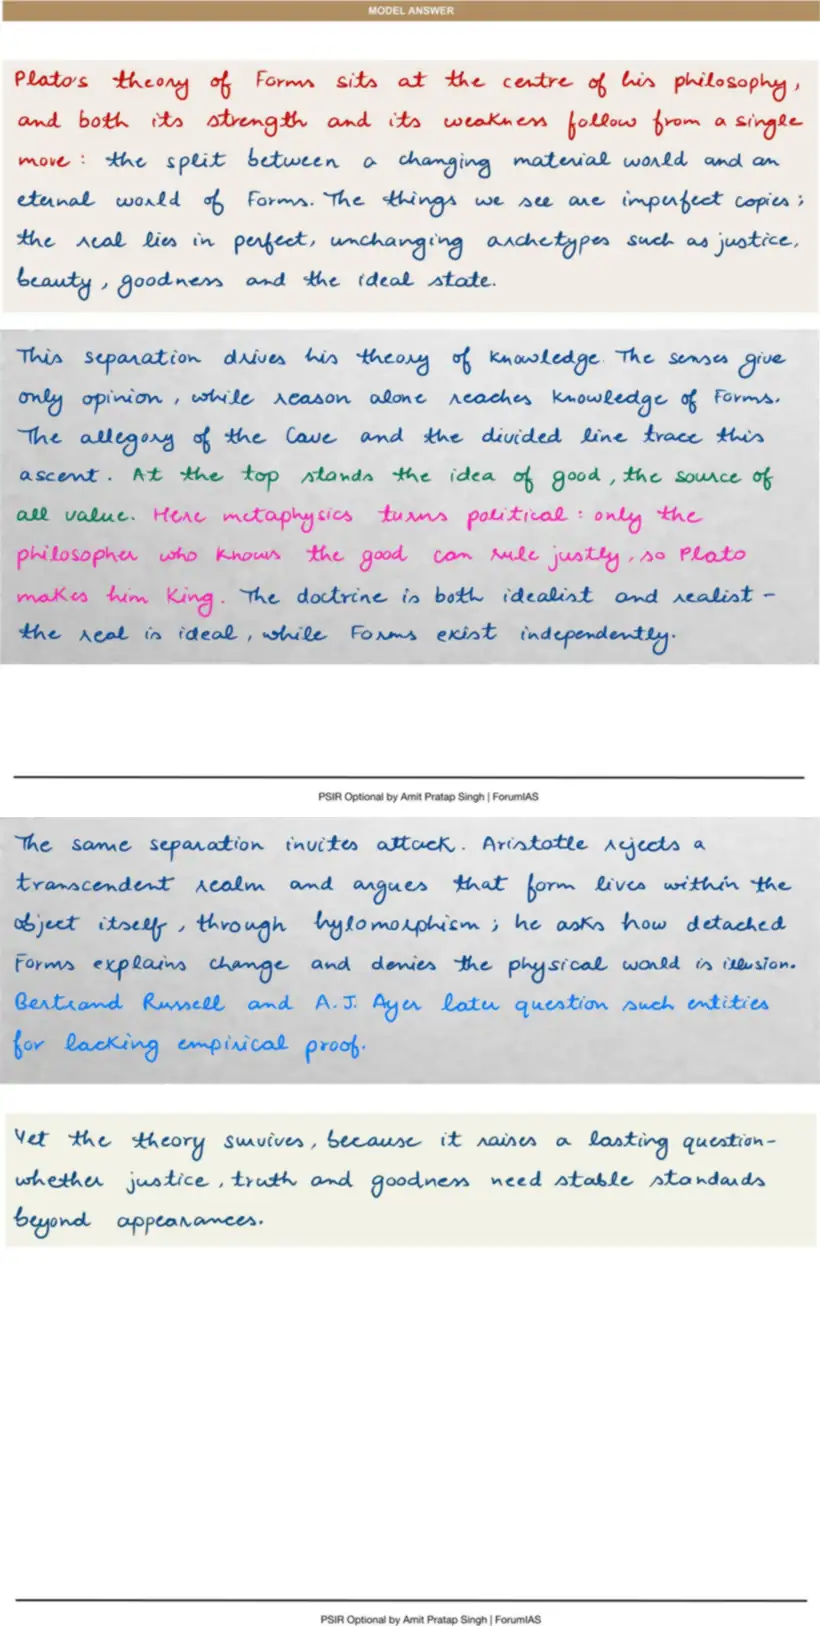 MODEL ANSWER
Plato's theory of Forms sits at the centre of his philosophy,
and both its strength and its weakness follow from a single
move : the split between a changing material world and an
eternal world of Forms. The things we see are imperfect copies ;
the real lies in perfect, unchanging archetypes such as justice,
beauty, goodness and the ideal state.
This separation drives his theory of knowledge. The senses give
only opinion, while reason alone reaches knowledge of Forms.
The allegory of the Cave and the divided line trace this
ascent. At the top stands the idea of good, the source of
all value. Here metaphysics turns political : only the
philosopher who knows the good can rule justly, so Plato
makes him King. The doctrine is both idealist and realist -
the real is ideal, while Forms exist independently.
PSIR Optional by Amit Pratap Singh | ForumIAS
The same separation invites attack. Aristotle rejects a
transcendent realm and argues that form lives within the
object itself, through hylomorphism ; he asks how detached
Forms explains change and denies the physical world is illusion.
Bertrand Russell and A.J. Ayer later question such entities
for lacking empirical proof.
Yet the theory survives, because it raises a lasting question-
whether justice, truth and goodness need stable standards
beyond appearances.
PSIR Optional by Amit Pratap Singh | ForumIAS